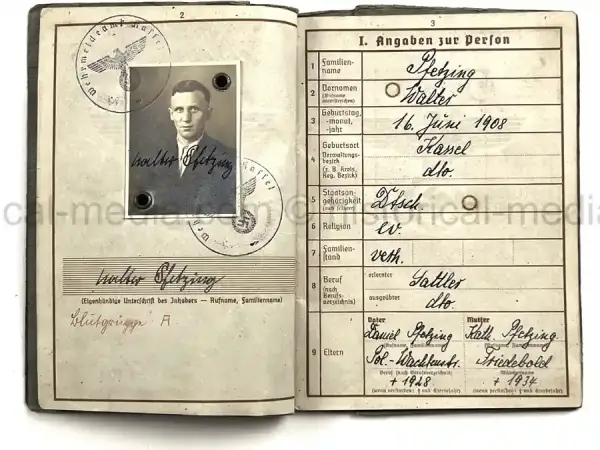 2
Wehrmeldeamt Kassel
Walter Pfetzing
Kassel
Walter Pfetzing
(Eigenhändige Unterschrift des Inhabers — Rufname, Familienname)
Blutgruppe A
3
I. Angaben zur Person
1 Familien-
name
Pfetzing
2 Vornamen
(Rufname
unterstreichen)
Walter
3 Geburtstag,
-monat,
-jahr
16. Juni 1908
4 Geburtsort
Verwaltungs-
bezirk
(z. B. Kreis,
Reg. Bezirk)
Kassel
dto.
5 Staatsan-
gehörigkeit
(auch frühere)
Dtsch.
6 Religion
ev.
7 Familien-
stand
verh.
8 Beruf
(nach
Berufs-
verzeichnis)
erlernter
Sattler
ausgeübter
dto.
9 Eltern
Vater
Daniel Pfetzing
(Rufname, Familienname)
Pol.-Wachtmstr.
Beruf (nach Berufsverzeichnis)
+ 1928
(wenn verstorben: † und Sterbejahr)
Mutter
Kath. Pfetzing
(Rufname, Familienname)
Friedebold
Mädchenname
+ 1934
(wenn verstorben: † und Sterbejahr)
cal-media.com © historical-media